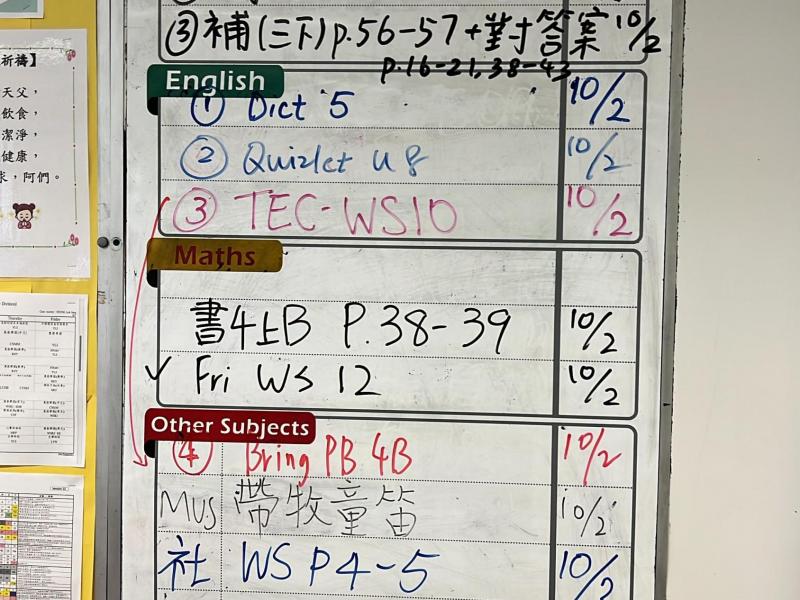 ③補(三下)p.56-57+對答案 10/2
p.16-21,38-43
English
① Dict 5 10/2
② Quizlet u8 10/2
③ TEC-WS10 10/2
Maths
書4上B P.38-39 10/2
✓ Fri WS 12 10/2
Other Subjects
④ Bring PB 4B 10/2
MUS 帶牧童笛 10/2
社 WS P4-5 10/2
祈禱】
天父，
飲食，
潔淨，
健康，
阿們。